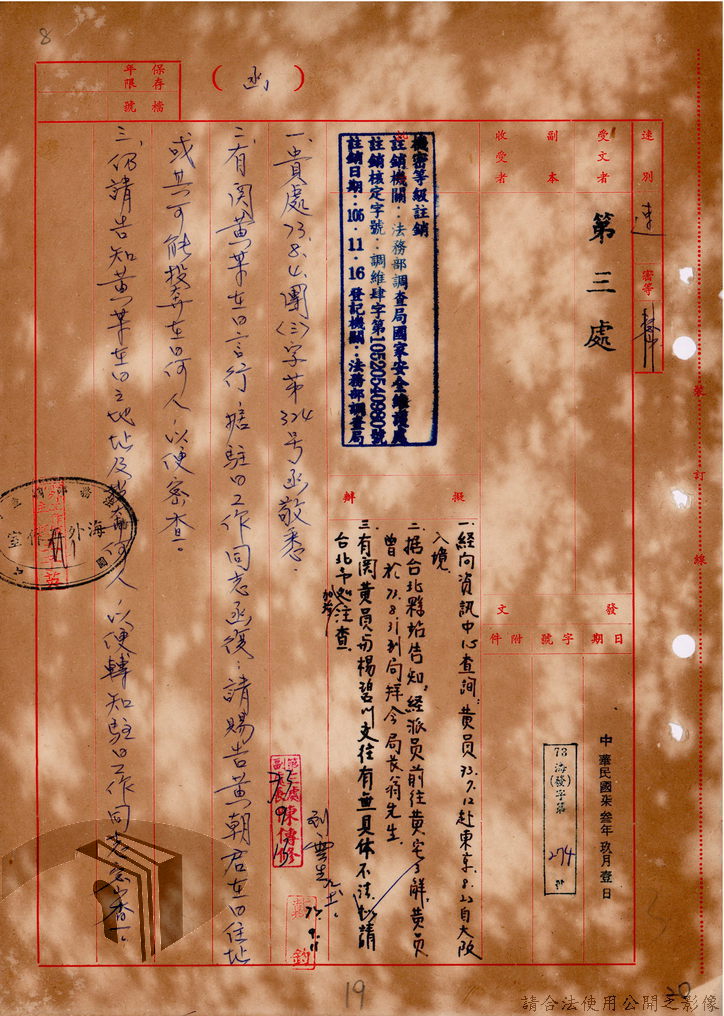 8
保存年限
檔號
（函）
速別
速
密等
受文者
第三處
副本
收受者
發文
日期
字號
附件
中華民國柒叁年玖月壹日
73海(發)字第274號
裝
訂
線
擬辦
機密等級註銷
註銷機關：法務部調查局國家安全維護處
註銷核定字號：調維肆字第10520540980號
註銷日期：105.11.16 登記機關：法務部調查局
一、貴處73.8.4.團(三)字第324号函敬悉。
二、有関黃某在日言行，据駐日工作同志函復：請賜告黃朝君在日住址
或其可能投靠在日何人，以便密查。
三、仍請告知黃某在日之地址及投靠何人，以便轉知駐日工作同志密查。
一、經向資訊中心查詢，黃員73.7.12赴東京，8.23自大阪
入境。
二、据台北縣站告知，經派員前往黃宅了解，黃員
曾於73.8.31到局拜会局長翁先生。
三、有関黃員与楊碧川交往有無具体不法，請
台北市處注查。
第三處
副處長
陳傳修
海外工作室
19
20
請合法使用公開之影像